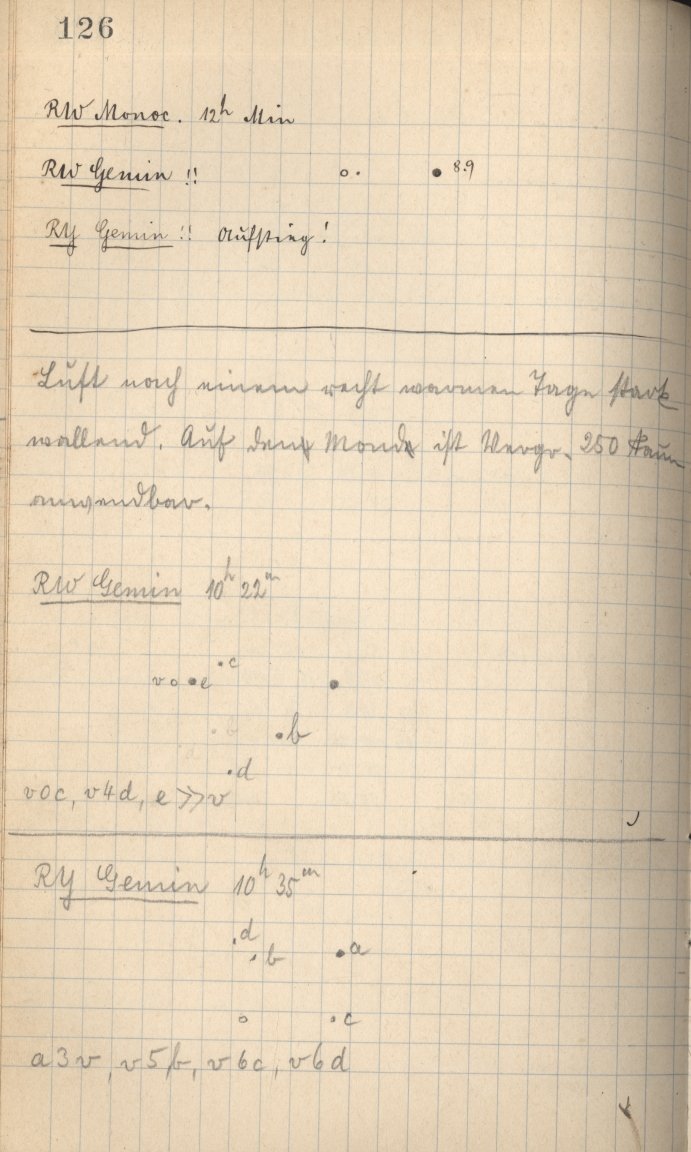 126
RW Monoc. 12h Min
RW Gemin !! 8.9
RY Gemin !! Aufstieg!
Luft nach einem recht warmen Tage stark
wallend. Auf dem Monde ist Vergr. 250 kaum
anwendbar.
RW Gemin 10h 22m
c
v e
b
d
v0c, v4d, e≫v
RY Gemin 10h 35m
d
b a
c
a3v, v5b, v6c, v6d